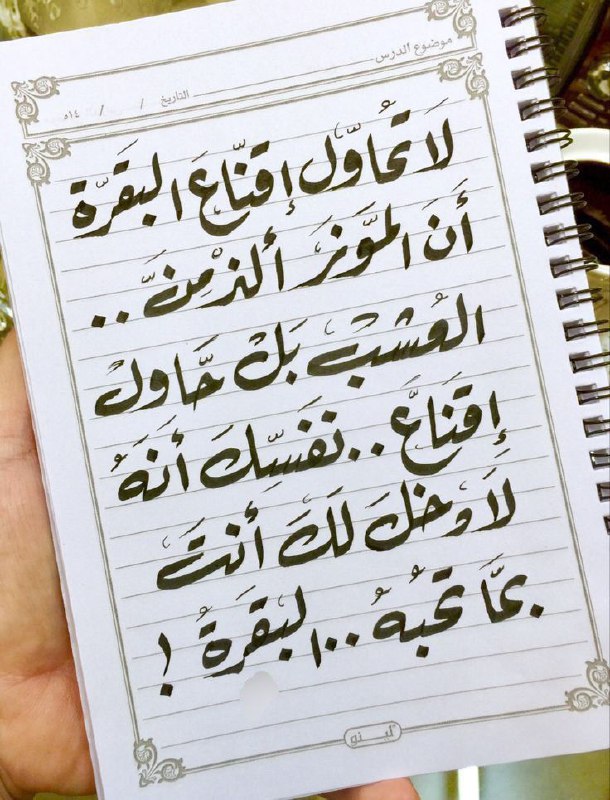 موضوع الدرس
التاريخ / / ١٤هـ
لَا تُحاوّل إقنّاعَ البَقَرّة
أَنَ المَوَنرَ ألذ مِنَ ..
العُشب بَلْ حَّاولْ
إقَنَاعَّ .. نَفَسِّكَ أنَهَُ
لَا دخلَ لَكَ أنتَ
بمَّا تحُبهُ ... البَقَرةُ !